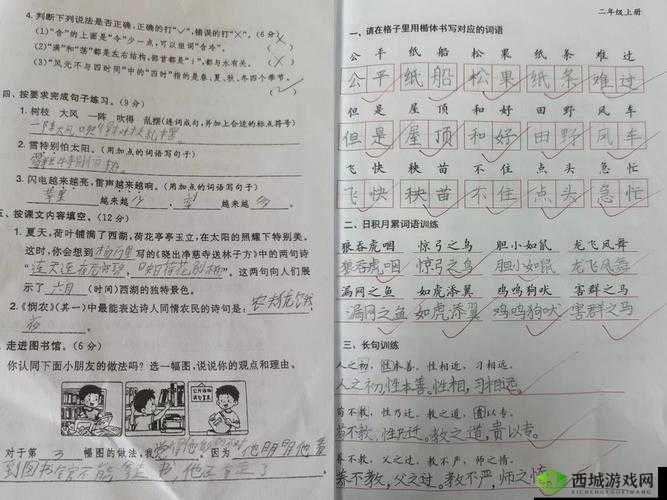 4. 判断下列说法是否正确,正确的打“✓”,错误的打“×”。(6分)
(1)“含”的上面是“今”少一点,可以组词“含冷”。
(2)“满”和“荡”都是左右结构,部首都是“氵”,都与水有关。
(3)“风光不与四时同”中的“四时”指的是春、夏、秋、冬四个季节。
四、按要求完成句子练习。(9分)
1. 树枝 大风 一阵 吹得 乱摆(连词成句,并加上合适的标点符号)
一阵大风吹得树枝乱摆
2. 雪特别怕太阳。(用加点的词语写句子)
3. 闪电越来越亮,雷声越来越响。(用加点的词语写句子)
越来越 少 , 越来越 多
五、按课文内容填空。(12分)
1. 夏天,荷叶铺满了西湖,荷花亭亭玉立,在太阳的照耀下特别美。
这时,你会想到 杨万里 写的《晓出净慈寺送林子方》中的两句诗
“ ”,“ ”。这两句向人们展
示了 六月 (时间)西湖的独特景色。
2.《悯农》(其一)中最能表达诗人同情农民的诗句是:
走进图书馆。(6分)
你认同下面小朋友的做法吗?选一幅图,说说你的观点和理由。
对于第 3 幅图的做法,我 ,因为 他明明
到图书
二年级上册
一、请在格子里用楷体书写对应的词语
公平 纸船 松果 纸条 难过
公平 纸船 松果 纸条 难过
但是 屋顶 和好 田野 风车
但是 屋顶 和好 田野 风车
飞快 秧苗 不住 点头 急忙
飞快 秧苗 不住 点头 急忙
二、日积月累词语训练
狼吞虎咽 惊弓之鸟 胆小如鼠 龙飞凤舞
狼吞虎咽 惊弓之鸟 胆小如鼠 龙飞凤舞
漏网之鱼 如虎添翼 鸡鸣狗吠 害群之马
漏网之鱼 如虎添翼 鸡鸣狗吠 害群之马
三、长句训练
人之初,性本善。性相近,习相远。
人之初,性本善。性相近,习相远。
苟不教,性乃迁。教之道,贵以专。
苟不教,性乃迁。教之道,贵以专。
养不教,父之过。教不严,师之惰。
养不教,父之过。教不严,师之惰。
西城游戏网